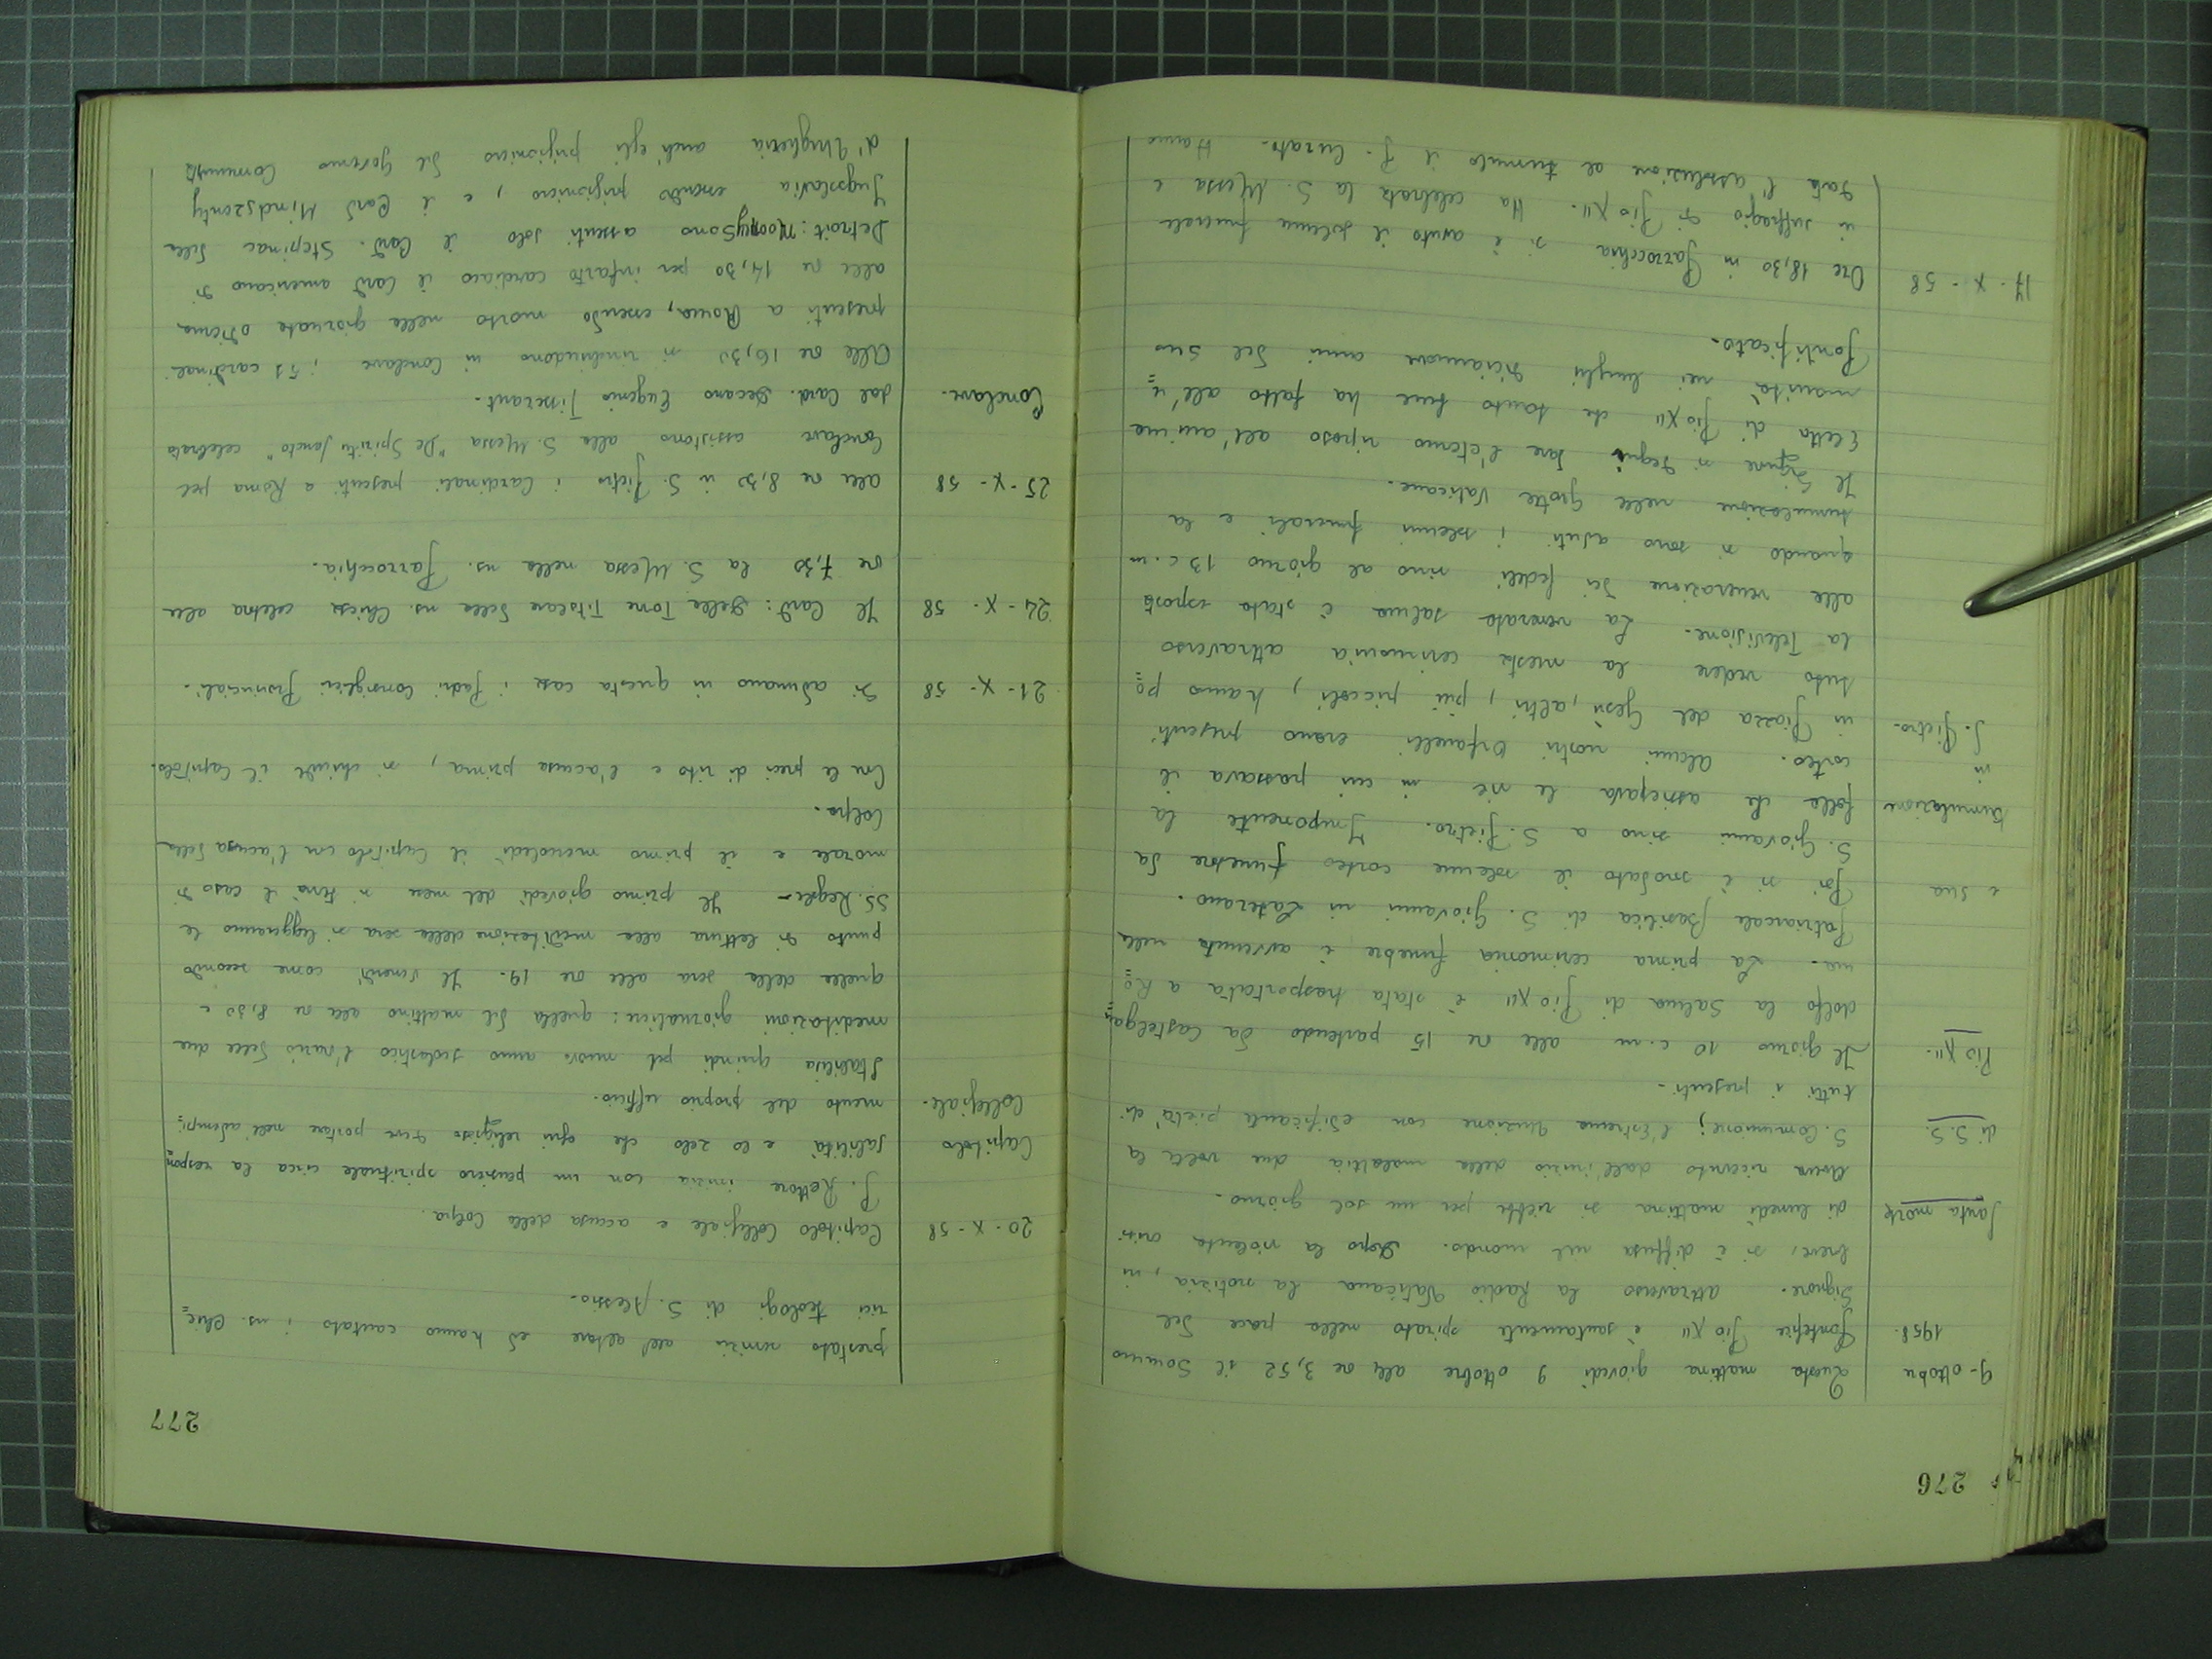 276
9- ottobre
1958.
Questa mattina giovedì 9 ottobre alle ore 3,52 il Sommo
Pontefice Pio XII è santamente spirato nella pace del
Signore. attraverso la Radio Vaticana la notizia, in
breve, si è diffusa nel mondo. Dopo la violenta crisi
Santa morte
di S.S.
Pio XII.
di lunedì mattina si riebbe per un sol giorno.
Aveva ricevuto dall'inizio della malattia due volte la
S. Comunione; l'Estrema Unzione con edificante pietà di
tutti i presenti.
Il giorno 10 c.m. alle ore 15 partendo da Castelgan=
dolfo la Salma di Pio XII è stata trasportata a Ro=
ma. La prima cerimonia funebre è avvenuta nella
Patriarcale Basilica di S. Giovanni in Laterano.
e sua
tumulazione
in
S. Pietro.
Poi si è snodato il solenne corteo funebre da
S. Giovanni sino a S. Pietro. Imponente la
folla che assiepava le vie in cui passava il
corteo. Alcuni nostri Orfanelli erano presenti
in Piazza del Gesù, altri, più piccoli, hanno po=
tuto vedere la mesta cerimonia attraverso
la Televisione. La venerata salma è stata esposta
alla venerazione dei fedeli sino al giorno 13 c.m
quando si sono avuti i solenni funerali e la
tumulazione nelle Grotte Vaticane.
Il Signore si degni dare l'eterno riposo all'anima
Eletta di Pio XII che tanto bene ha fatto all'u=
manità nei lunghi diciannove anni del suo
Pontificato.
17 - X - 58
Ore 18,30 in Parrocchia si è avuto il solenne funerale
in suffragio di Pio XII. Ha celebrato la S. Messa e
data l'assoluzione al tumulo il P. Curato. Hanno
277
prestato servizio all'altare ed hanno cantato i ns. Chie=
rici teologi di S. Alessio.
20 - X - 58
Capitolo Collegiale e accusa della Colpa.
Capitolo
Collegiale.
P. Rettore inizia con un pensiero spirituale circa la respon=
sabilità e lo zelo che ogni religioso deve portare nell'adempi=
mento del proprio ufficio.
Stabilisce quindi pel nuovo anno scolastico l'orario delle due
meditazioni giornaliere: quella del mattino alle ore 8,30 e
quella della sera alle ore 19. Il Venerdì come secondo
punto di lettura alla meditazione della sera si leggeranno le
SS. Regole - Il primo giovedì del mese si terrà il caso di
morale e il primo mercoledì il Capitolo con l'accusa della
Colpa.
Con le preci di rito e l'accusa prima, si chiude il Capitolo.
21 - X - 58
Si adunano in questa casa i Padri Consiglieri Provinciali.
24 - X - 58
Il Card: Della Torre Titolare della ns. Chiesa celebra alle
ore 7,30 la S. Messa nella ns. Parrocchia.
25 - X - 58
alle ore 8,30 in S. Pietro i Cardinali presenti a Roma pel
Conclave assistono alla S. Messa "De Spiritu Sancto" celebrata
dal Card. Decano Eugenio Tisserant.
Conclave.
Alle ore 16,30 si rinchiudono in Conclave i 51 cardinali
presenti a Roma, essendo morto nella giornata odierna
alle ore 14,30 per infarto cardiaco il Card americano di
Detroit: Mooney. Sono assenti solo il Card. Stepinac della
Jugoslavia essendo prigioniero, e il Card Mindszenty
d'Ungheria anch'egli prigioniero del Governo Comunista